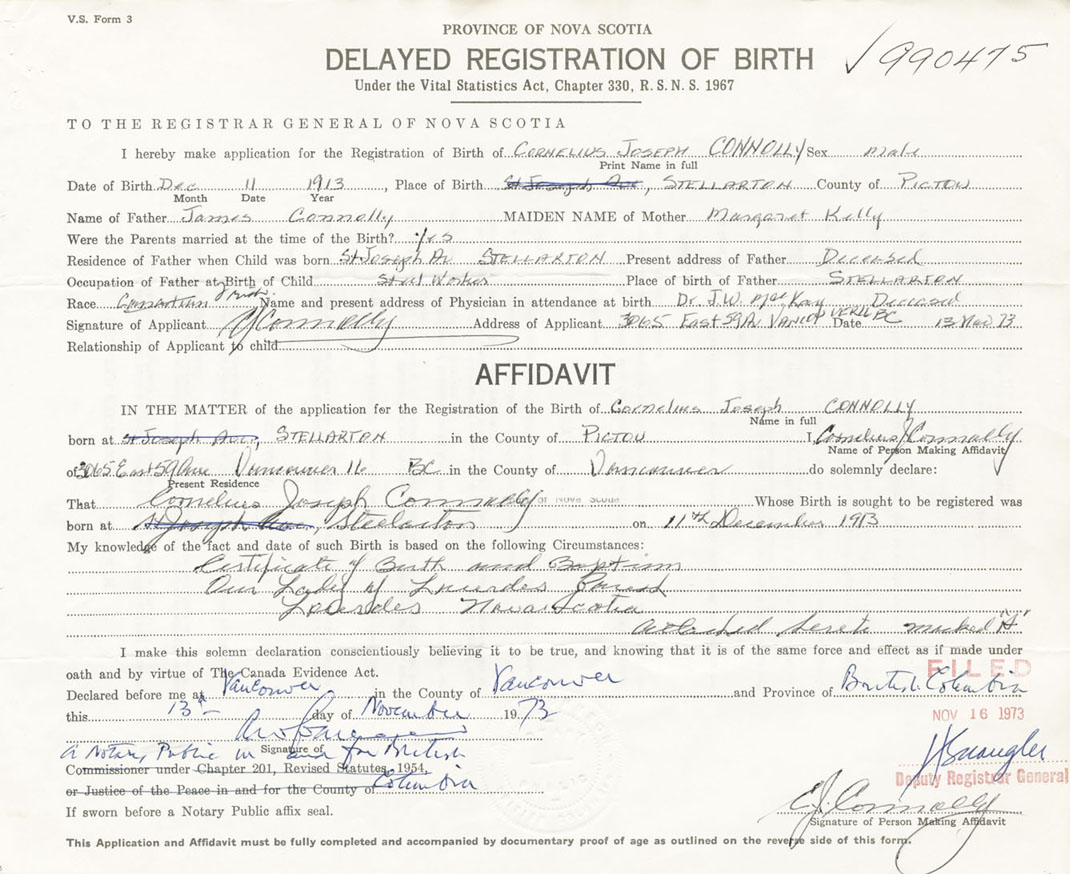 V.S. Form 3
PROVINCE OF NOVA SCOTIA
DELAYED REGISTRATION OF BIRTH
Under the Vital Statistics Act, Chapter 330, R.S.N.S. 1967
990475
TO THE REGISTRAR GENERAL OF NOVA SCOTIA
I hereby make application for the Registration of Birth of CORNELIUS JOSEPH CONNOLLY Sex male
Print Name in full
Date of Birth Dec 11 1913, Place of Birth St Joseph Ave, STELLARTON County of PICTOU
Month Date Year
Name of Father James Connolly MAIDEN NAME of Mother Margaret Kelly
Were the Parents married at the time of the Birth? Yes
Residence of Father when Child was born St Joseph Av STELLARTON Present address of Father Deceased
Occupation of Father at Birth of Child Steel Worker Place of birth of Father STELLARTON
Race Name and present address of Physician in attendance at birth Dr. J.W. MacKay Deceased
Signature of Applicant CJConnolly Address of Applicant 3065 East 59 Av VANCOUVER BC Date 13 Nov 73
Relationship of Applicant to child
AFFIDAVIT
IN THE MATTER of the application fer the Registration of the Birth of Cornelius Joseph CONNOLLY
Name in full
born at St Joseph Ave, STELLARTON in the County of PICTOU I, Cornelius J Connolly
Name of Person Making Affidavit
of 3065 East 59 Ave Vancouver 16 BC in the County of Vancouver do solemnly declare:
Present Residence
That Cornelius Joseph Connolly of Nova Scotia Whose Birth is sought to be registered was
born at St Joseph Ave, Stellarton on 11th December 1913
My knowledge of the fact and date of such Birth is based on the following Circumstances:
Certificate of Birth and Baptism
Our Lady of Lourdes Parish
Lourdes Nova Scotia
attached hereto marked "A"
I make this solemn declaration conscientiously believing it to be true, and knowing that it is of the same force and effect as if made under
oath and by virtue of The Canada Evidence Act.
FILED
Declared before me at Vancouver in the County of Vancouver and Province of British Columbia
this 13th day of November 1973
NOV 16 1973
Signature of
a Notary Public in and for British
Commissioner under Chapter 201, Revised Statutes, 1954,
Columbia
Deputy Registrar General
or Justice of the Peace in and for the County of
CJ. Connolly
If sworn before a Notary Public affix seal.
Signature of Person Making Affidavit
This Application and Affidavit must be fully completed and accompanied by documentary proof of age as outlined on the reverse side of this form.